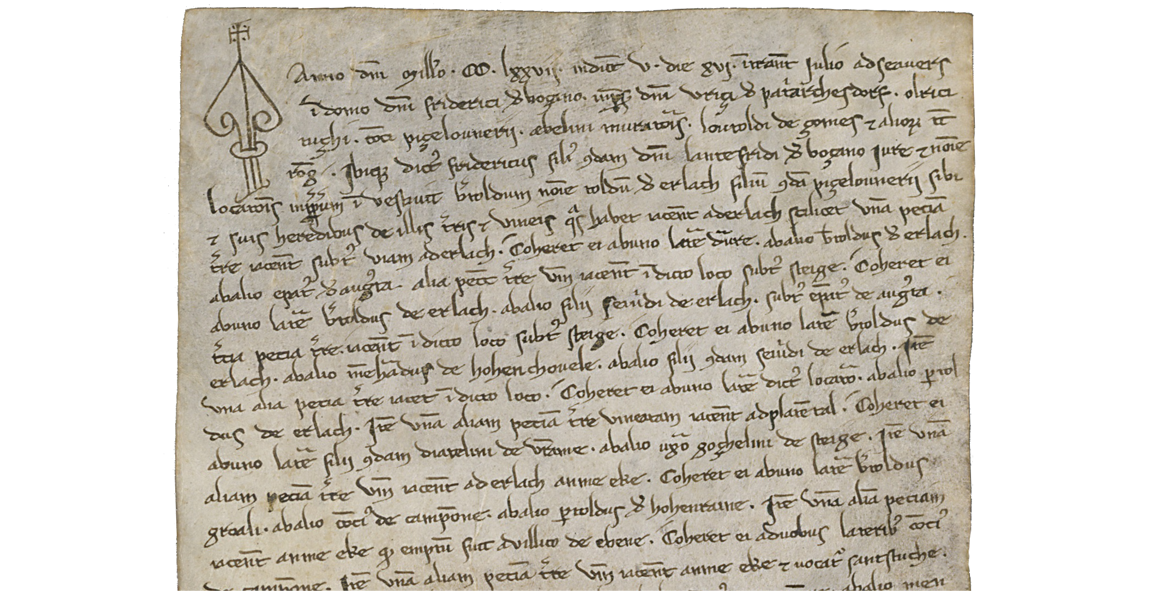 Anno dni millo · CC · lxxvii · indict v · die xvi · intrant Julio ad seavers
i domo dni friderici d bozano · dni d patarchesdorf · olrici
ruschi · toci pizelounerii · abelini muratois · loutoldi de gomes & alioru tt
rog · Ibiqz dict fridericus fili qdam dni lantefridi d bozano Jure & noie
locatois i vestivit btoldum noie toldu d erlach filiu qda pizelounerii sibi
& suis heredibus de illis tris & vineis qs habet iacent ad erlach scilicet una pecia
tre iacent subt viam ad erlach · Coheret ei ab uno late dure · ab alio btoldus d erlach ·
ab alio epat d augta · alia pecc tre vin iacent i dicto loco subt steige · Coheret ei
ab uno late btoldus de erlach · ab alio filii seuidi de erlach · subt epat de augta ·
tcia pecia tre · iacent i dicto loco subt steige · Coheret ei ab uno late btoldus de
erlach · ab alio mehadus de hohenchovele · ab alio filii qdam seuidi de erlach · Ite
una alia pecia tre iacet i dicto loco · Coheret ei ab uno late dict locato · ab alio ptol
dus de erlach · Ite una aliam pecia tre vineatam iacent ad platental · Coheret ei
ab uno late filii qdam diatelini de urane · ab alio ugo gozhelini de steige · Ite una
aliam pecia tre vin iacent ad erlach an me eke · Coheret ei ab uno late btoldus
groali · ab alio toci de campone · ab alio ptoldus d hohenraine · Ite una alia peciam
iacent an me eke q emptu fuit a villico de ebene · Coheret ei a duobus laterib toci
de campone · Ite una aliam pecia tre vin iacent an me eke & vocat santstuche ·
ab alio men